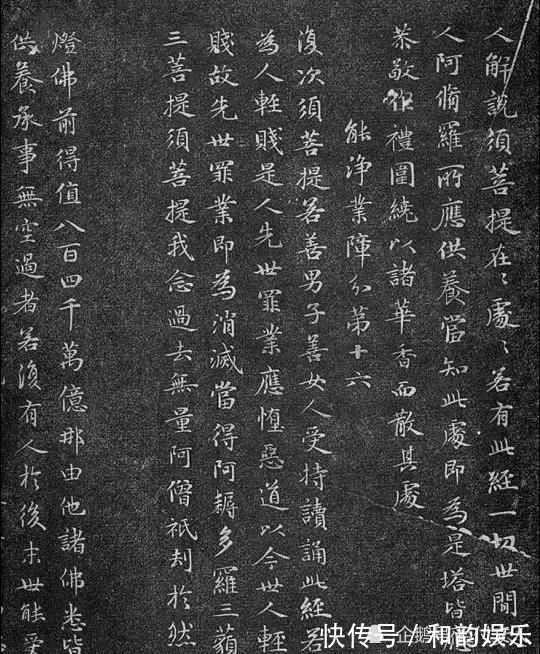 人解說須菩提在〻處〻若有此經一切世間
人阿脩羅所應供養當知此處即為是塔皆應
恭敬作禮圍繞以諸華香而散其處
能淨業障分第十六
復次須菩提若善男子善女人受持讀誦此經若
為人輕賤是人先世罪業應墮惡道以今世人輕
賤故先世罪業即為消滅當得阿耨多羅三藐
三菩提須菩提我念過去無量阿僧祇劫於然
燈佛前得值八百四千萬億那由他諸佛悉皆
供養承事無空過者若復有人於後末世能受
企鹅
快传号/和韵娱乐